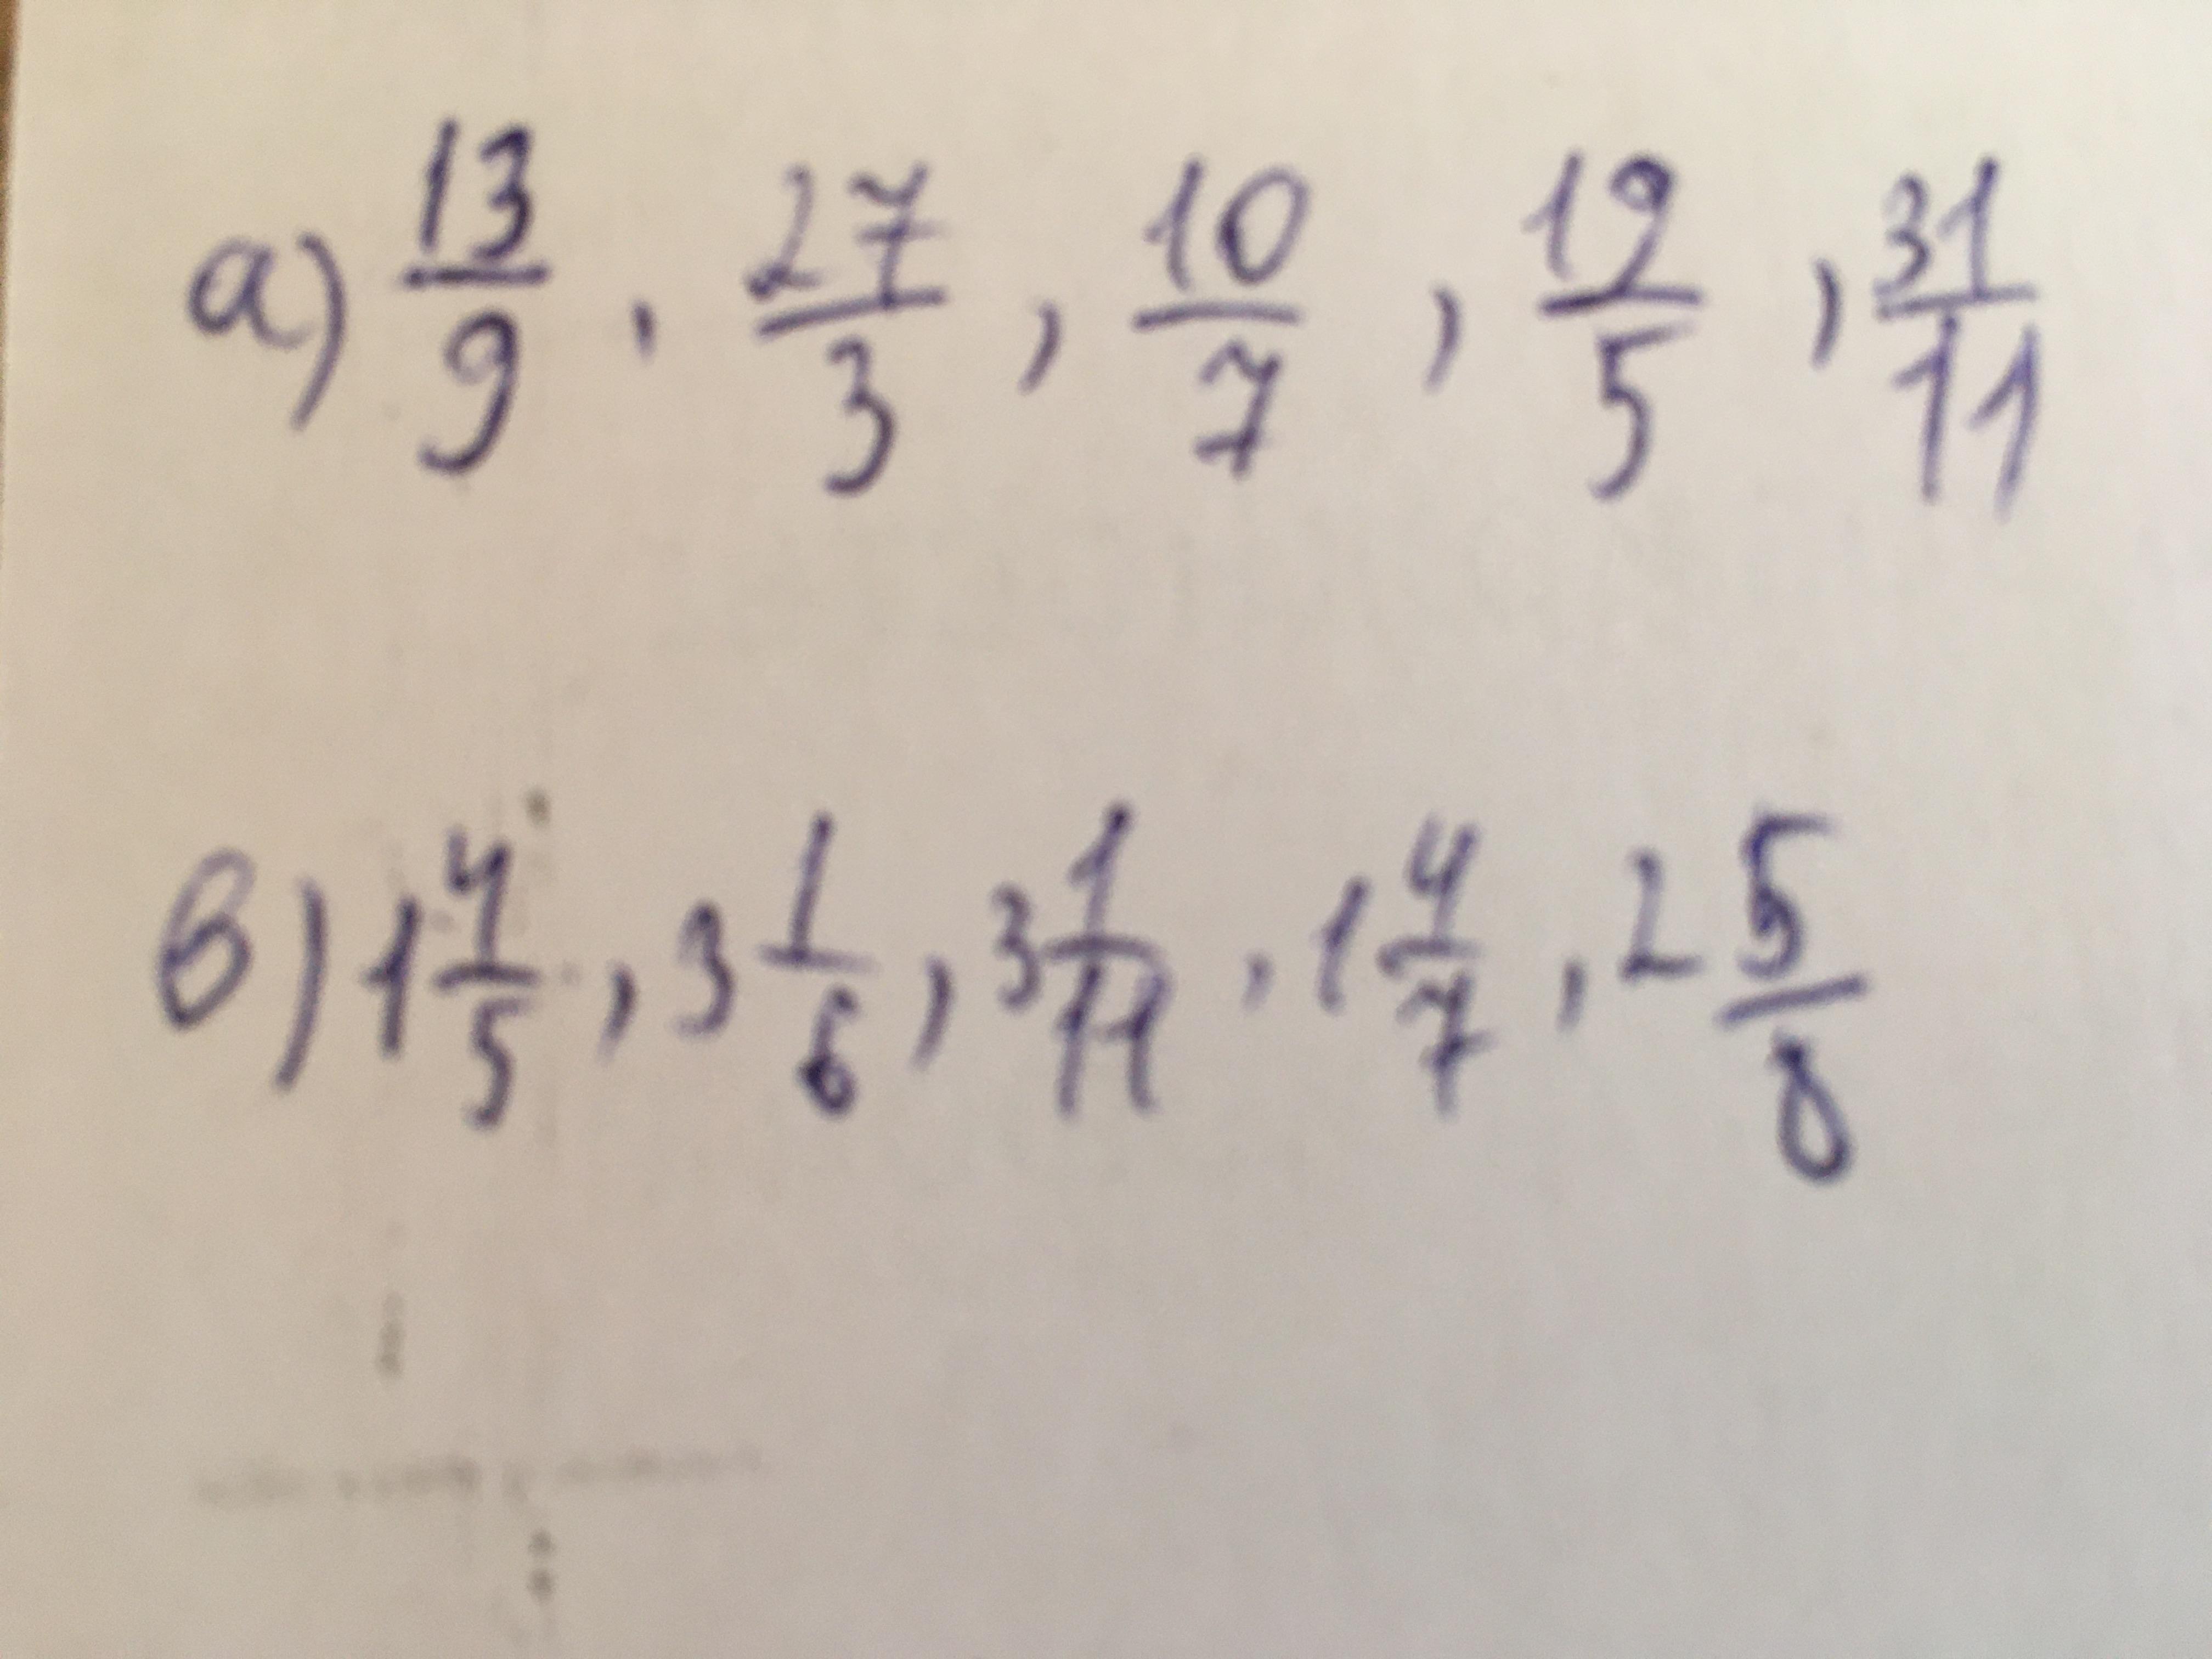 а) 13/9, 27/3, 10/7, 19/5, 31/11
в) 1 4/5, 3 1/6, 3 1/11, 1 4/7, 2 5/8